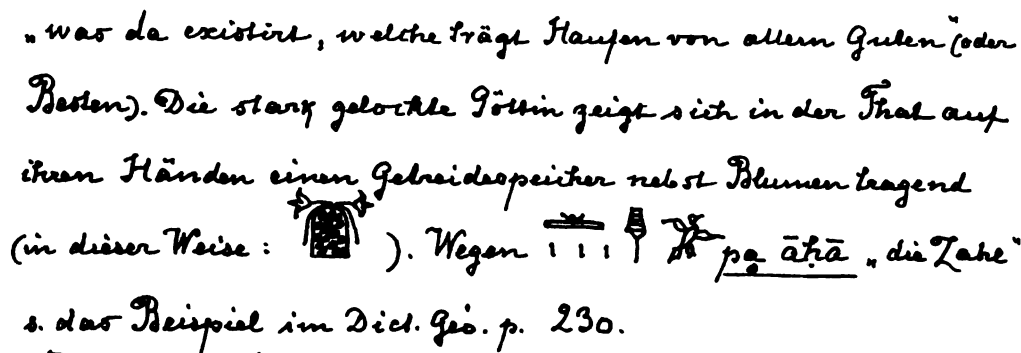 „was da existirt, welche trägt Haufen von allem Guten“ (oder
Besten). Die stark gelockte Göttin zeigt sich in der That auf
ihren Händen einen Getreidespeicher nebst Blumen tragend
(in dieser Weise: ). Wegen pa āḥā „die Zahl“
s. das Beispiel im Dict. Géo. p. 230.